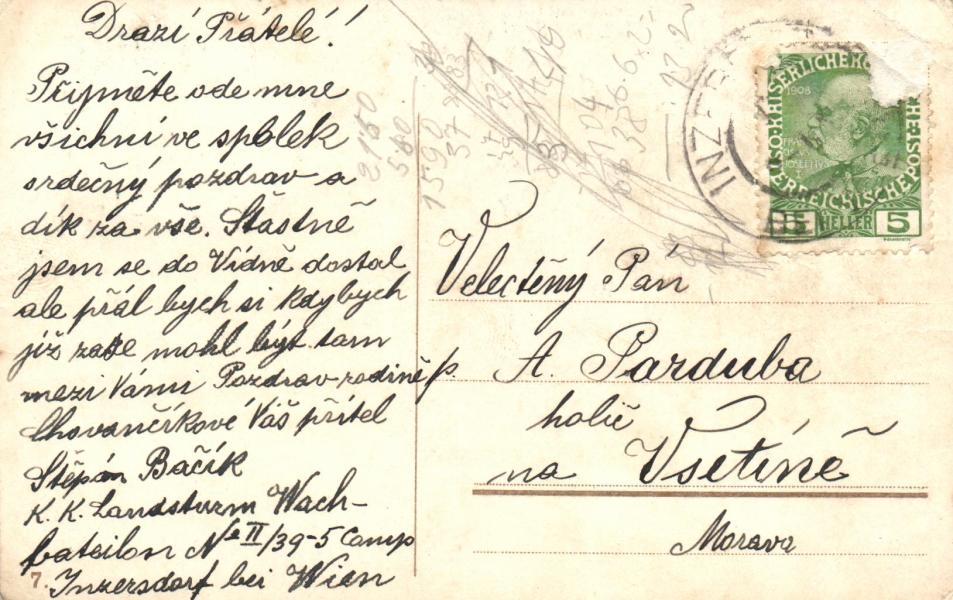 Drazí Přátelé!
Přijměte ode mne
všichni ve spolek
srdečný pozdrav a
dík za vše. Šťastně
jsem se do Vídně dostal
ale přál bych si kdybych
již zase mohl být tam
mezi Vámi Pozdrav rodině p.
Chovančíkové Váš přítel
Štěpán Bačík
K. K. Landsturm Wach-
bateilon No II/39-5 Comp
Inzersdorf bei Wien
7.
2.160
560
1590
INZER
1908
KAISERLICHE KÖ
ÖSTERREICHISCHE POST
5 HELLER 5
Velectěný Pán
A. Parduba
holič
na Vsetíně
Morava